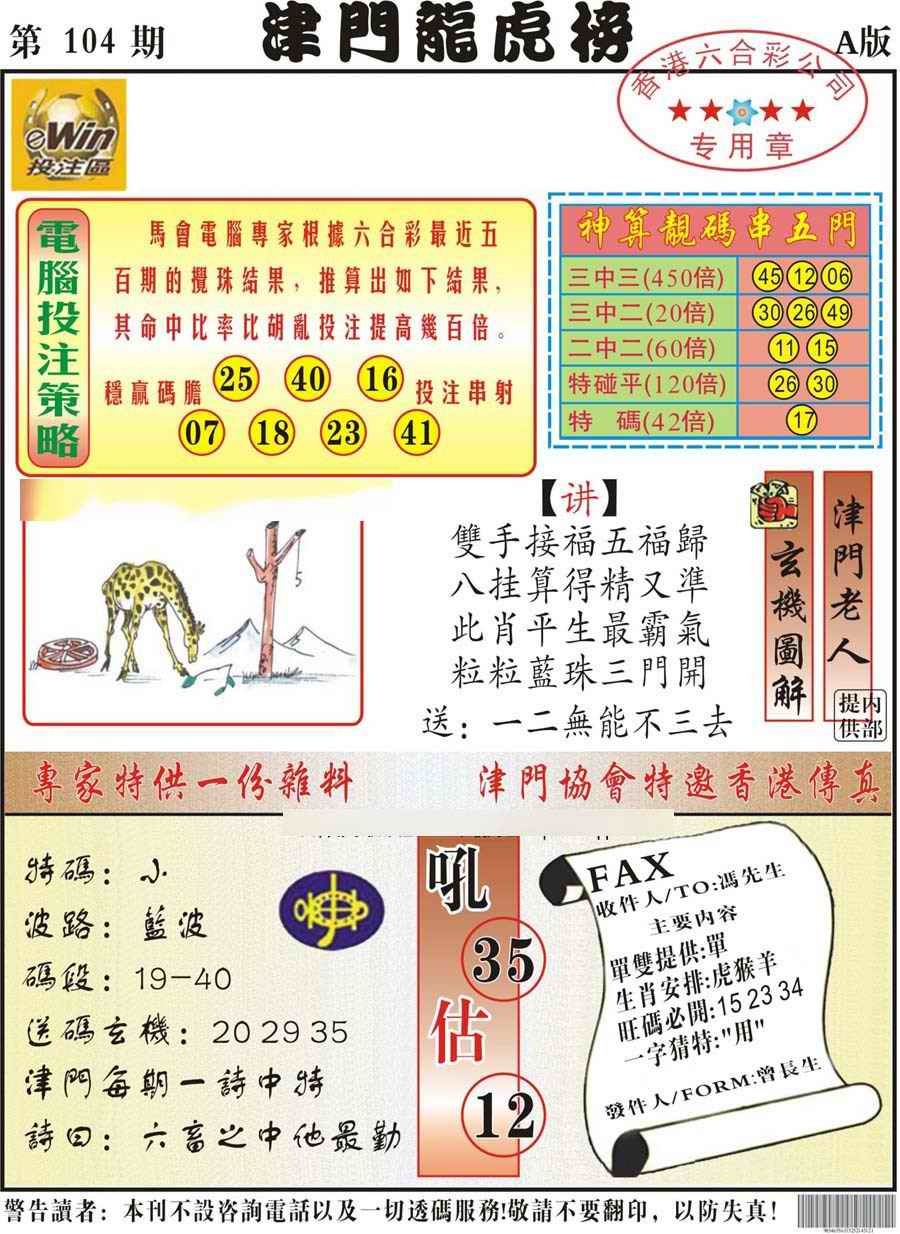 第 104 期
津門龍虎榜
A版
香港六合彩公司
专用章
eWin
投注區
電腦投注策略
馬會電腦專家根據六合彩最近五
百期的攪珠結果，推算出如下結果，
其命中比率比胡亂投注提高幾百倍。
穩贏碼膽 25 40 16 投注串射
07 18 23 41
神算靚碼串五門
三中三(450倍) 45 12 06
三中二(20倍) 30 26 49
二中二(60倍) 11 15
特碰平(120倍) 26 30
特 碼(42倍) 17
【讲】
雙手接福五福歸
八挂算得精又準
此肖平生最霸氣
粒粒藍珠三門開
送：一二無能不三去
玄機圖解
津門老人
内部提供
5
專家特供一份雜料
津門協會特邀香港傳真
特碼：小
波路：藍波
碼段：19-40
送碼玄機：20 29 35
津門每期一詩中特
詩曰：六畜之中他最勤
吼
35
估
12
FAX
收件人/TO:馮先生
主要内容
單雙提供:單
生肖安排:虎猴羊
旺碼必開:15 23 34
一字猜特:"用"
發件人/FORM:曾長生
警告讀者：本刊不設咨詢電話以及一切透碼服務!敬請不要翻印，以防失真!